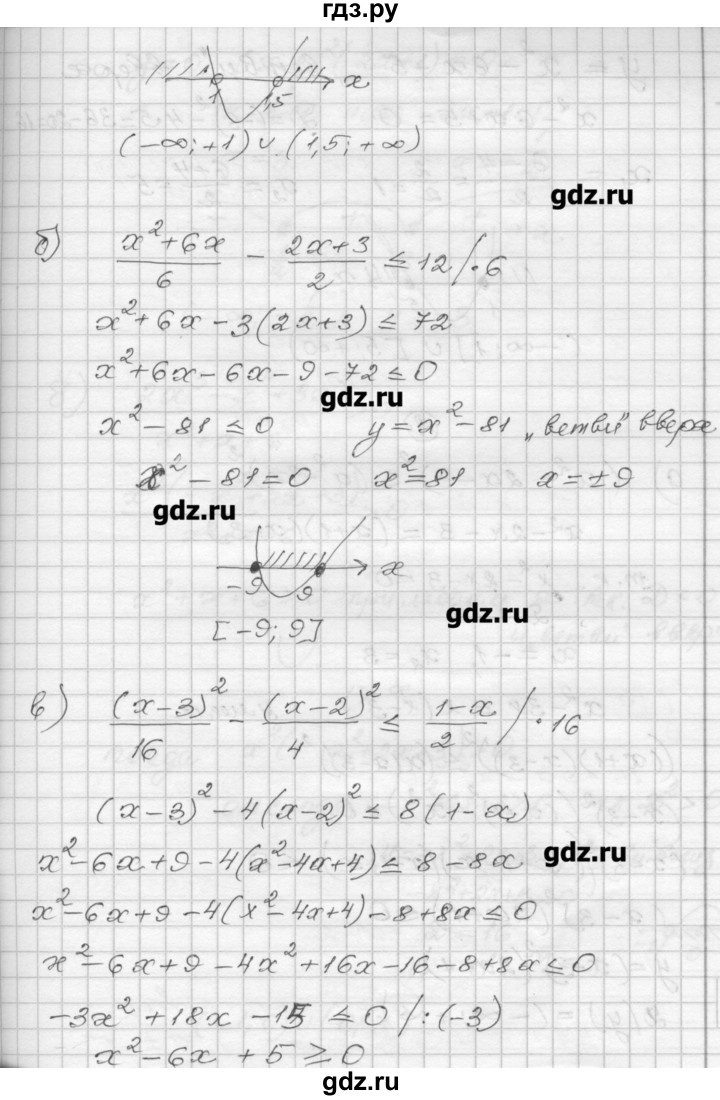 гдз.ру
1 1,5 x
(-∞; +1) ∪ (1,5; +∞)
gdz.ru
б) (x²+6x)/6 - (2x+3)/2 ≤ 12 /·6
x²+6x-3(2x+3) ≤ 72
x²+6x-6x-9-72 ≤ 0
gdz.ru
x²-81 ≤ 0 y=x²-81 „ветви" вверх
x²-81=0 x²=81 x=±9
gdz.ru
-9 9 x
gdz.ru
[-9; 9]
в) (x-3)²/16 - (x-2)²/4 ≤ (1-x)/2 /·16
(x-3)²-4(x-2)² ≤ 8(1-x)
x²-6x+9-4(x²-4x+4) ≤ 8-8x
gdz.ru
x²-6x+9-4(x²-4x+4)-8+8x ≤ 0
x²-6x+9-4x²+16x-16-8+8x ≤ 0
-3x²+18x-15 ≤ 0 /:(-3)
x²-6x+5 ≥ 0
gdz.ru